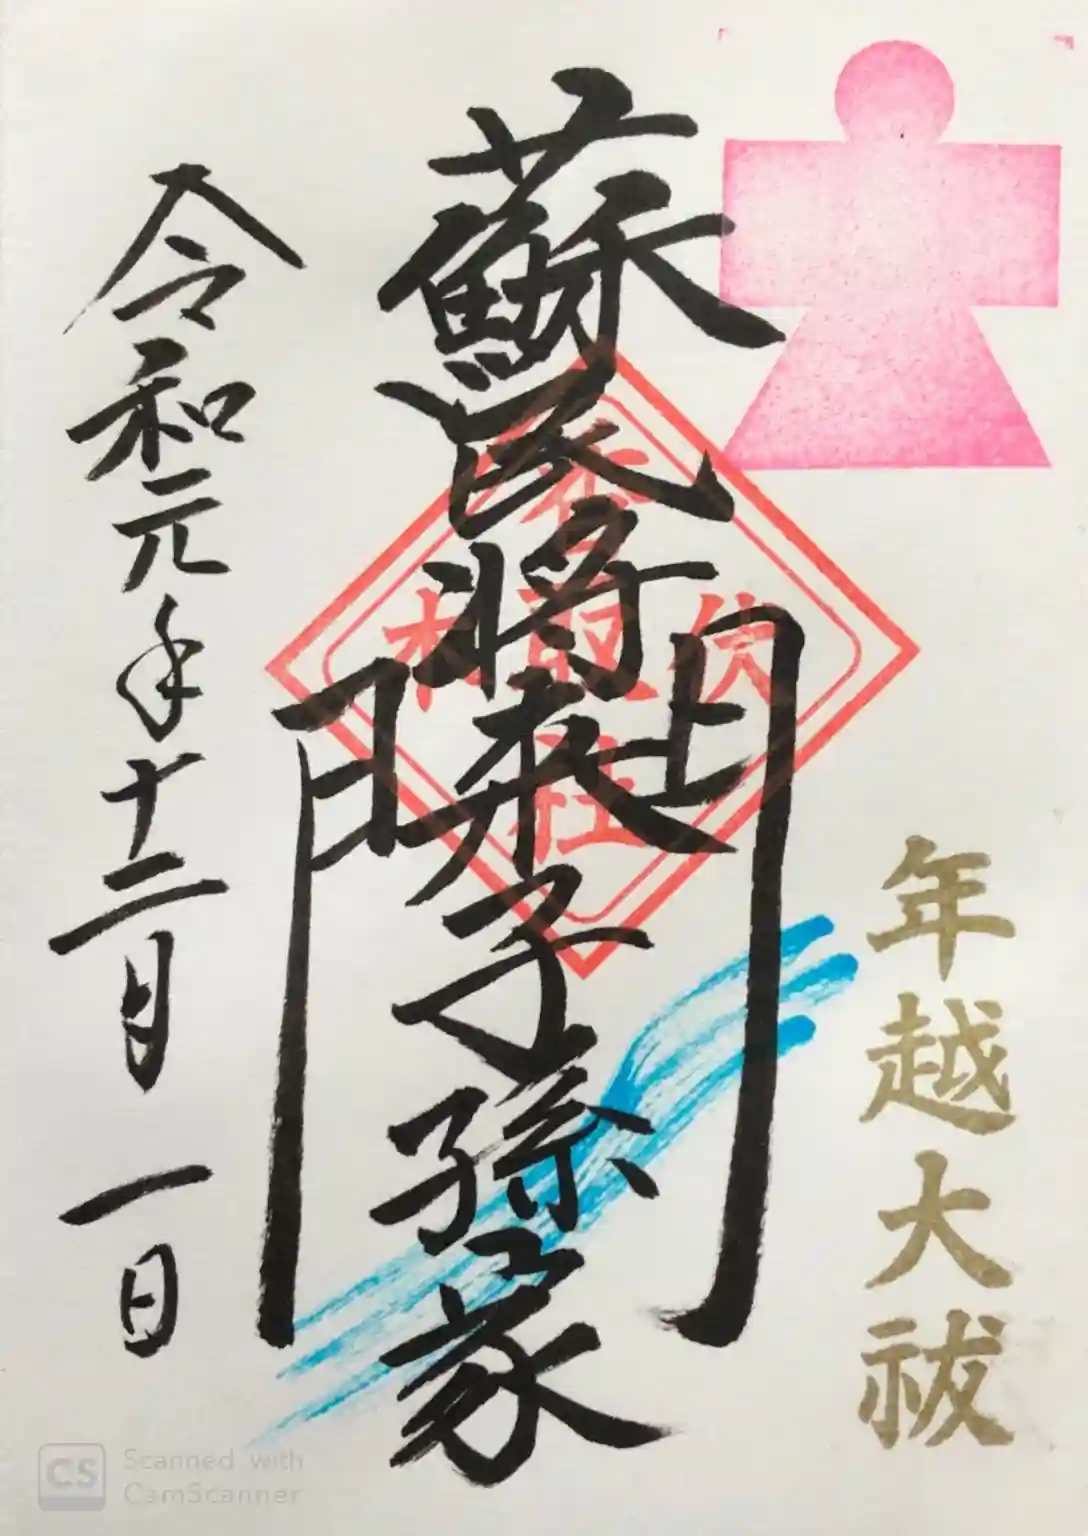 年越大祓
蘇民将来子孫家門
伏木
香取社
令和元年十二月一日
CS Scanned with
CamScanner